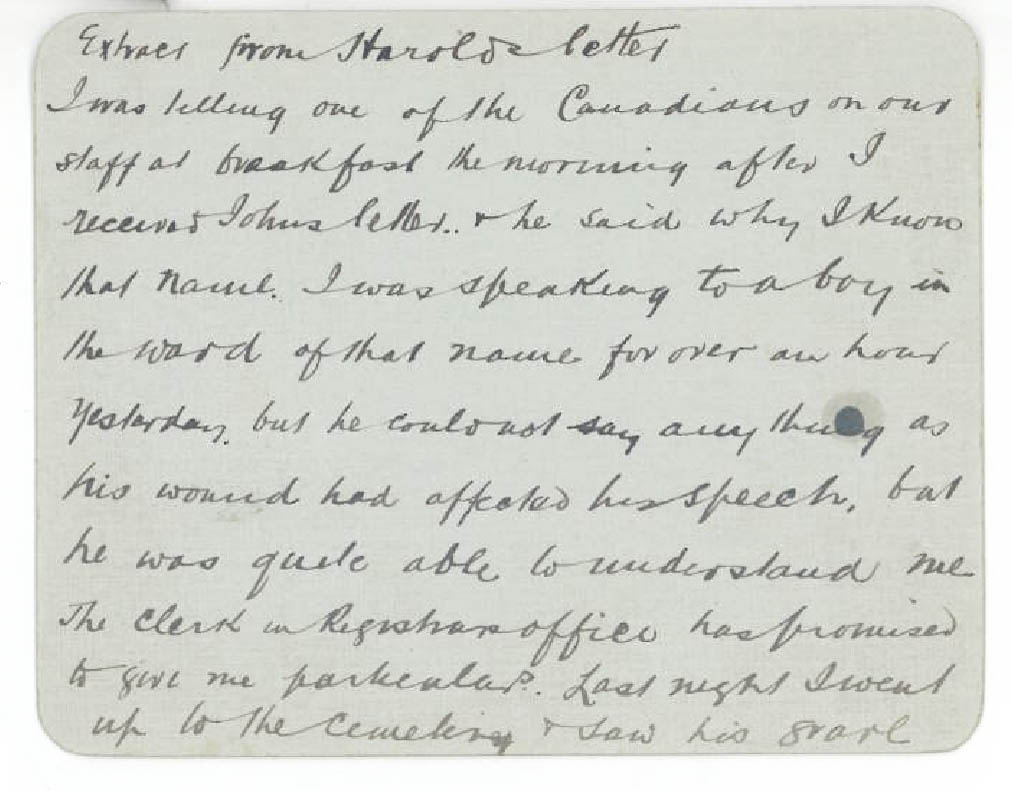 Extract from Harolds letter
I was telling one of the Canadians on our
staff at breakfast the morning after I
received Johns letter.. & he said why I know
that name. I was speaking to a boy in
the ward of that name for over an hour
Yesterday, but he could not say anything as
his wound had affected his speech, but
he was quite able to understand me
The clerk in Registrars office has promised
to give me particulars. Last night I went
up to the cemetery & saw his grave